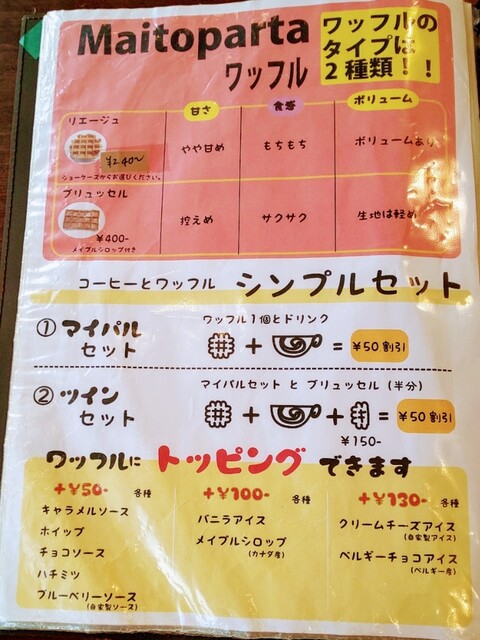 Maitoparta
ワッフル
ワッフルの
タイプは
2種類!!
甘さ
食感
ボリューム
リエージュ
¥240~
ショーケースからお選びください。
やや甘め
もちもち
ボリュームあり
ブリュッセル
¥400-
メイプルシロップ付き
控えめ
サクサク
生地は軽め
コーヒーとワッフル シンプルセット
① マイパル
セット
ワッフル1個とドリンク
+ = ¥50割引
② ツイン
セット
マイパルセット と ブリュッセル (半分)
+ + = ¥50割引
¥150-
ワッフルに トッピング できます
+¥50- 各種
キャラメルソース
ホイップ
チョコソース
ハチミツ
ブルーベリーソース
(自家製ソース)
+¥100- 各種
バニラアイス
メイプルシロップ
(カナダ産)
+¥130- 各種
クリームチーズアイス
(自家製アイス)
ベルギーチョコアイス
(ベルギー産)